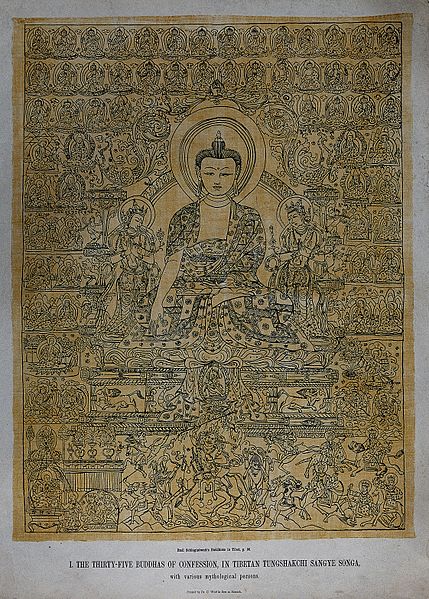 Emil Schlagintweit's Buddhism in Tibet, p. 96.
I. THE THIRTY-FIVE BUDDHAS OF CONFESSION, IN TIBETAN TUNGSHAKCHI SANGYE SONGA,
with various mythological persons.
Printed by Dr. C. Wolf & Son in Munich.